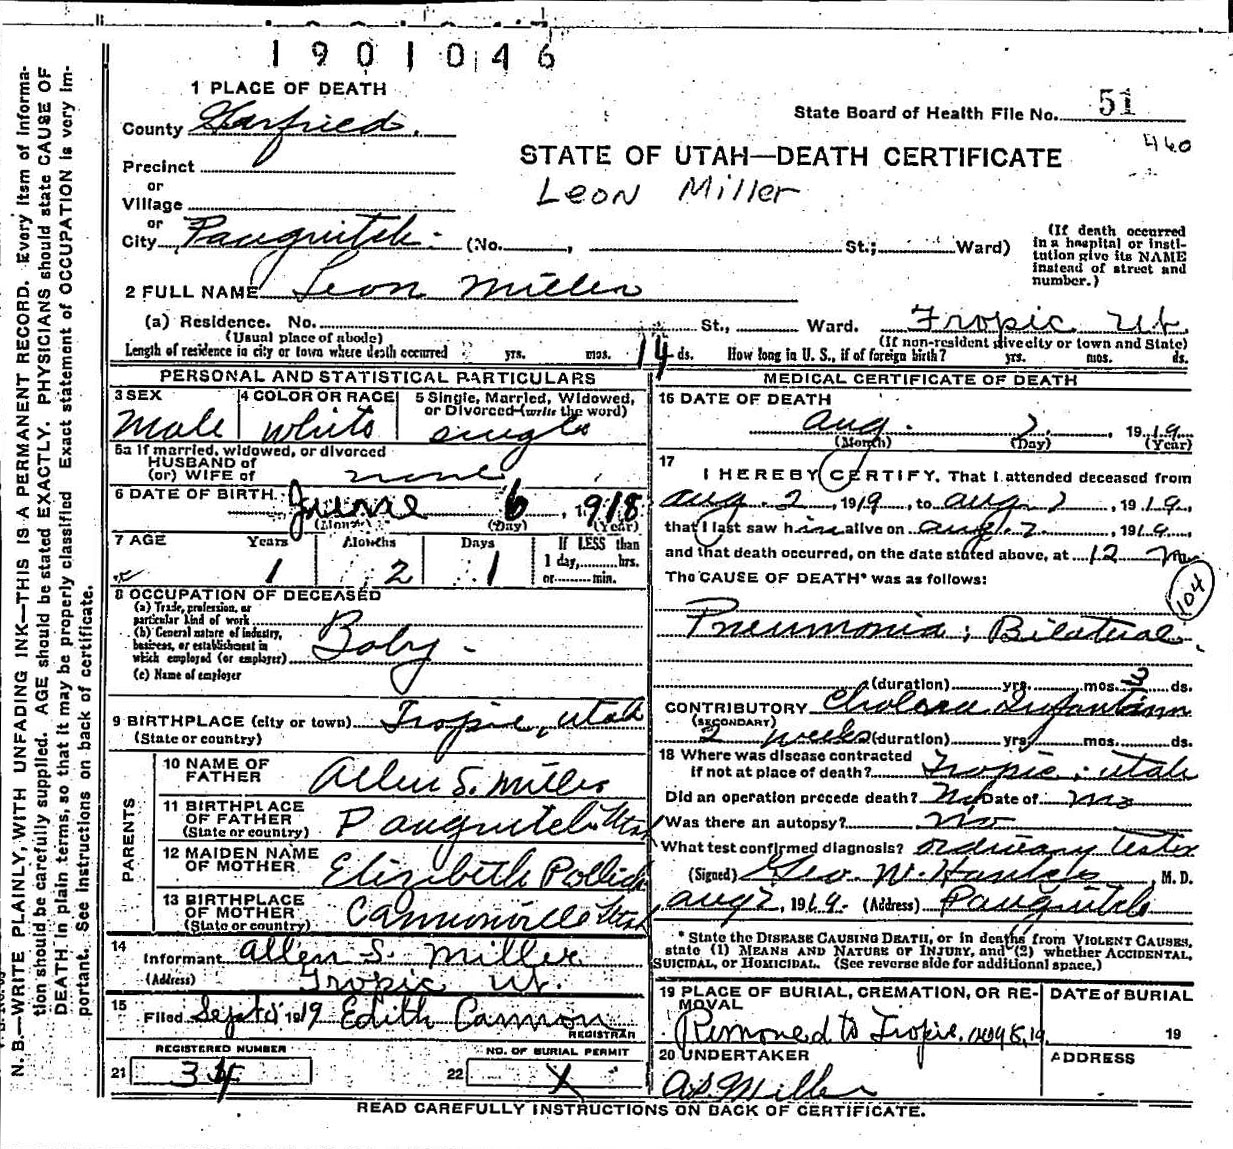 1901046
1 PLACE OF DEATH
County Garfield.
State Board of Health File No. 51
460
Precinct
or
Village
or
City Panguitch. (No. , St.; Ward)
STATE OF UTAH—DEATH CERTIFICATE
Leon Miller
(If death occurred in a hospital or institution give its NAME instead of street and number.)
2 FULL NAME Leon Miller
(a) Residence. No. St., Ward. Tropic Ut.
(Usual place of abode) (If non-resident give city or town and State)
Length of residence in city or town where death occurred yrs. mos. 14 ds. How long in U. S., if of foreign birth? yrs. mos. ds.
PERSONAL AND STATISTICAL PARTICULARS
3 SEX
Male
4 COLOR OR RACE
White
5 Single, Married, Widowed, or Divorced (write the word)
single
5a If married, widowed, or divorced
HUSBAND of
(or) WIFE of none
6 DATE OF BIRTH June 6, 1918
(Month) (Day) (Year)
7 AGE Years Months Days If LESS than
1 2 1 1 day, hrs.
or min.
8 OCCUPATION OF DECEASED
(a) Trade, profession, or particular kind of work
(b) General nature of industry, business, or establishment in which employed (or employer)
Baby.
(c) Name of employer
9 BIRTHPLACE (city or town) Tropic, Utah
(State or country)
PARENTS
10 NAME OF FATHER Allen S. Miller
11 BIRTHPLACE OF FATHER Panguitch Utah
(State or country)
12 MAIDEN NAME OF MOTHER Elizabeth Pollick
13 BIRTHPLACE OF MOTHER Cannonville Utah
(State or country)
14
Informant Allen S. Miller
(Address) Tropic Ut.
15
Filed Sept 1919 Edith Cannon
REGISTRAR
REGISTERED NUMBER
21 34
NO. OF BURIAL PERMIT
22 X
MEDICAL CERTIFICATE OF DEATH
16 DATE OF DEATH
Aug. 2, 1919
(Month) (Day) (Year)
17
I HEREBY CERTIFY, That I attended deceased from
Aug. 2, 1919, to Aug 2, 1919,
that I last saw him alive on Aug. 2, 1919,
and that death occurred, on the date stated above, at 12 m.
The CAUSE OF DEATH* was as follows:
104
Pneumonia; Bilateral.
(duration) yrs. mos. 3 ds.
CONTRIBUTORY Cholera Infantum
(SECONDARY)
2 weeks (duration) yrs. mos. ds.
18 Where was disease contracted
if not at place of death? Tropic, Utah
Did an operation precede death? No Date of no
Was there an autopsy? No
What test confirmed diagnosis? ordinary tests
(Signed) Geo. W., M. D.
Aug 2, 1919. (Address) Panguitch
* State the DISEASE CAUSING DEATH, or in deaths from VIOLENT CAUSES, state (1) MEANS AND NATURE OF INJURY, and (2) whether ACCIDENTAL, SUICIDAL, or HOMICIDAL. (See reverse side for additional space.)
19 PLACE OF BURIAL, CREMATION, OR REMOVAL
Removed to Tropic.
DATE of BURIAL
19
20 UNDERTAKER
A.S. Miller
ADDRESS
READ CAREFULLY INSTRUCTIONS ON BACK OF CERTIFICATE.
N. B.—WRITE PLAINLY, WITH UNFADING INK—THIS IS A PERMANENT RECORD. Every item of information should be carefully supplied. AGE should be stated EXACTLY. PHYSICIANS should state CAUSE OF DEATH in plain terms, so that it may be properly classified. Exact statement of OCCUPATION is very important. See instructions on back of certificate.